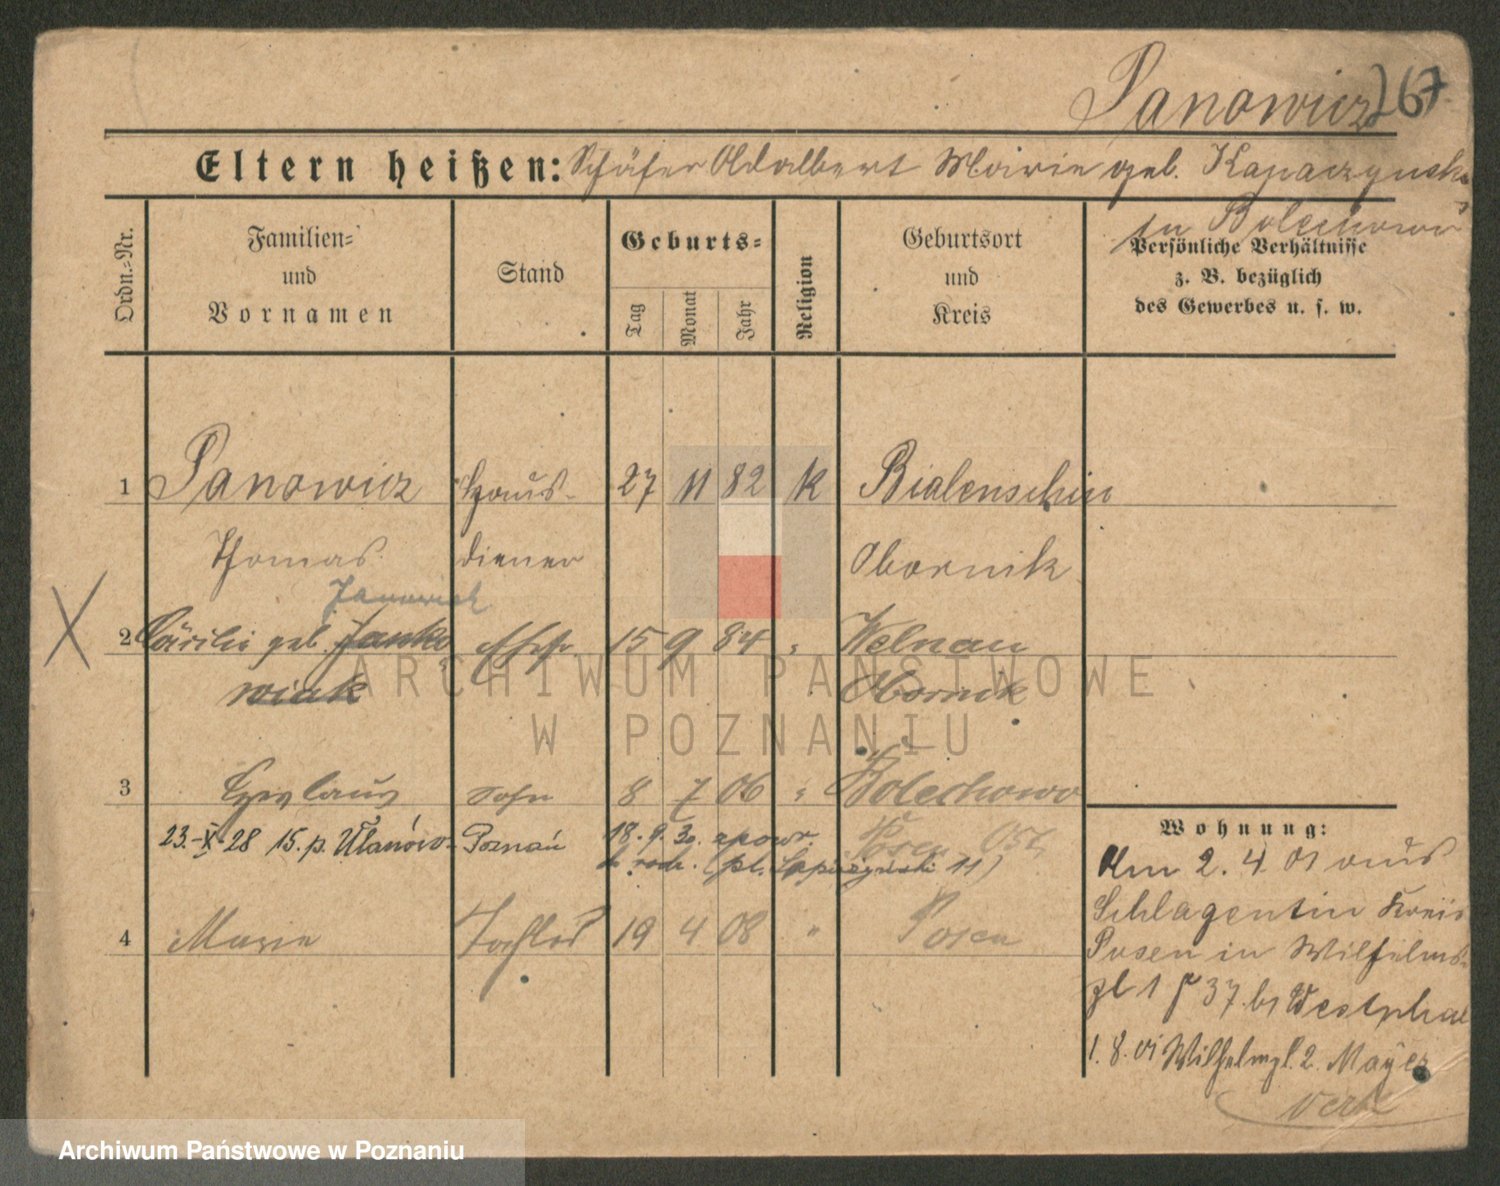 Panowicz 267
Eltern heißen: Schäfer Adalbert Marie geb. Kapaczynska
zu Bolechowo
Ordn.-Nr.
Familien-
und
Vornamen
Stand
Geburts-
Tag
Monat
Jahr
Religion
Geburtsort
und
Kreis
Persönliche Verhältnisse
z. B. bezüglich
des Gewerbes u. s. w.
1 Panowicz Haus- 27 11 82 k Bialenschin
Thomas diener Obornik
Janowiak
2 Cäcilie geb. Janko Ehefr. 15 9 84 " Welnau
wiak Obornik
3 Czeslaus Sohn 8 7 06 " Bolechowo
23.-X-28 15. p. Ułanów- Poznań 18. 9. 30. zpowr. Posen Ost
do rodz. (pl. Sapieżyński 11)
4 Marie Tochter 19 4 08 " Posen
Wohnung:
Am 2. 4 01 aus
Schlagentin Kreis
Posen in Wilhelms-
pl 1 37. by Westphal
1. 8. 01 Wilhelmpl. 2. Mayer
verh
ARCHIWUM PAŃSTWOWE
W POZNANIU
Archiwum Państwowe w Poznaniu